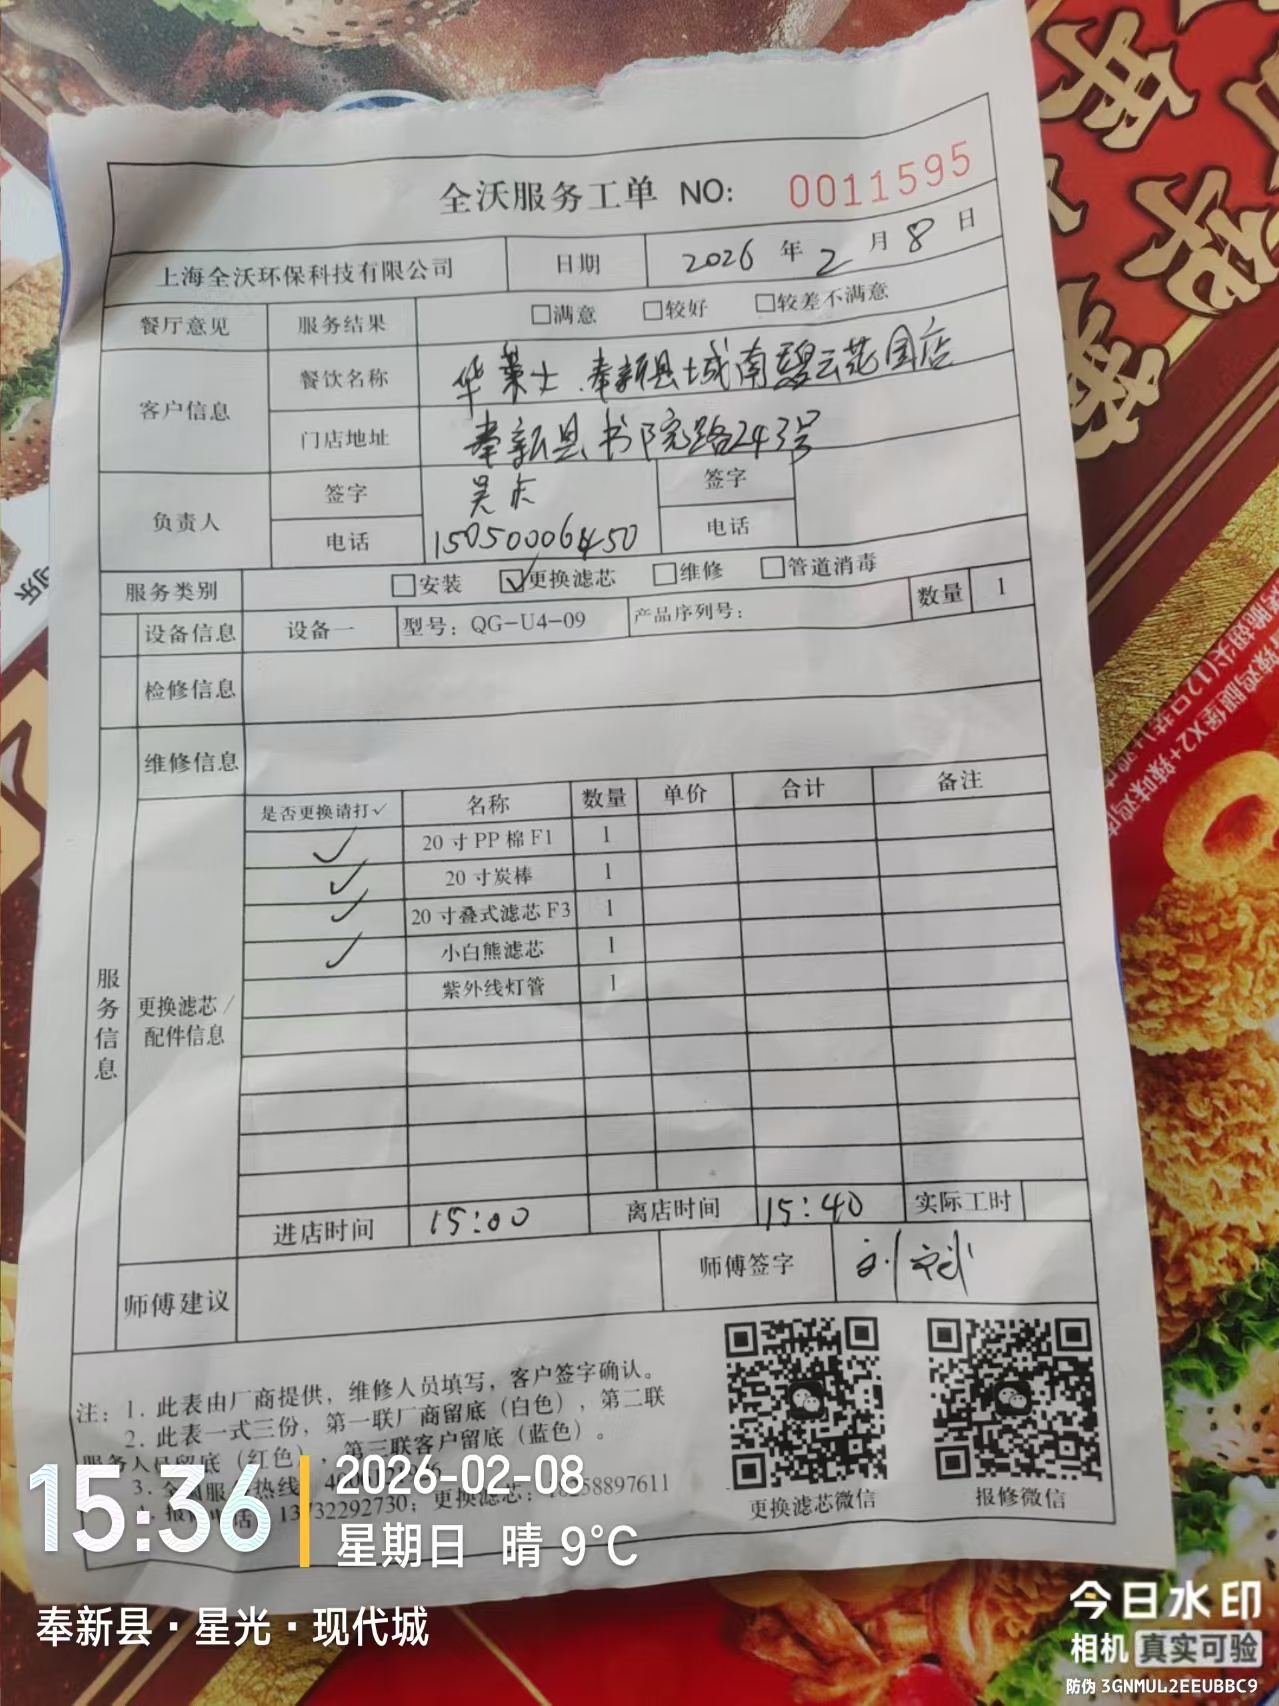 全沃服务工单 NO: 0011595
上海全沃环保科技有限公司 日期 2026 年 2 月 8 日
餐厅意见 服务结果 □满意 □较好 □较差不满意
客户信息 餐饮名称 华莱士.奉新县城南碧云花园店
门店地址 奉新县书院路243号
负责人 签字 吴 签字
电话 电话
服务类别 □安装 ☑更换滤芯 □维修 □管道消毒
设备信息 设备一 型号: QG-U4-09 产品序列号: 数量 1
检修信息
维修信息
服务信息
更换滤芯/
配件信息
是否更换请打✓ 名称 数量 单价 合计 备注
✓ 20寸PP棉F1 1
✓ 20寸炭棒 1
✓ 20寸叠式滤芯F3 1
✓ 小白熊滤芯 1
紫外线灯管 1
进店时间 15:00 离店时间 15:40 实际工时
师傅建议 师傅签字 刘斌
注: 1. 此表由厂商提供，维修人员填写，客户签字确认。
2. 此表一式三份，第一联厂商留底（白色），第二联
服务人员留底（红色），第三联客户留底（蓝色）。
3. 全国服务热线
4. 报修电话 13732292730; 更换滤芯: 58897611
更换滤芯微信 报修微信
15:36 2026-02-08
星期日 晴 9°C
奉新县·星光·现代城
今日水印
相机 真实可验
防伪 3GNMUL2EEUBBC9